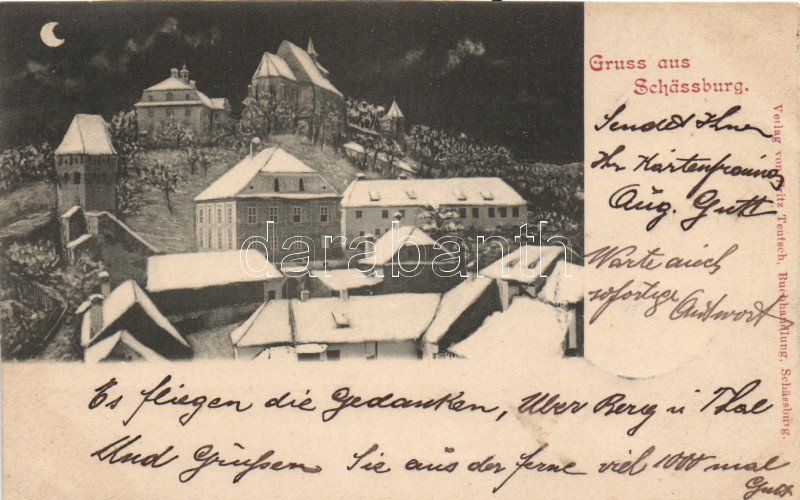 Gruss aus
Schässburg.
Sendet Ihnen
Ihr Kartenfreund
Aug. Gutt
Warte auch
sofortige
Antwort
Verlag von Fritz Teutsch, Buchhandlung, Schässburg.
darabanth
Es fliegen die Gedanken, Uber Berg u Thal
Und Grüßen Sie aus der ferne viel 1000 mal
Gutt